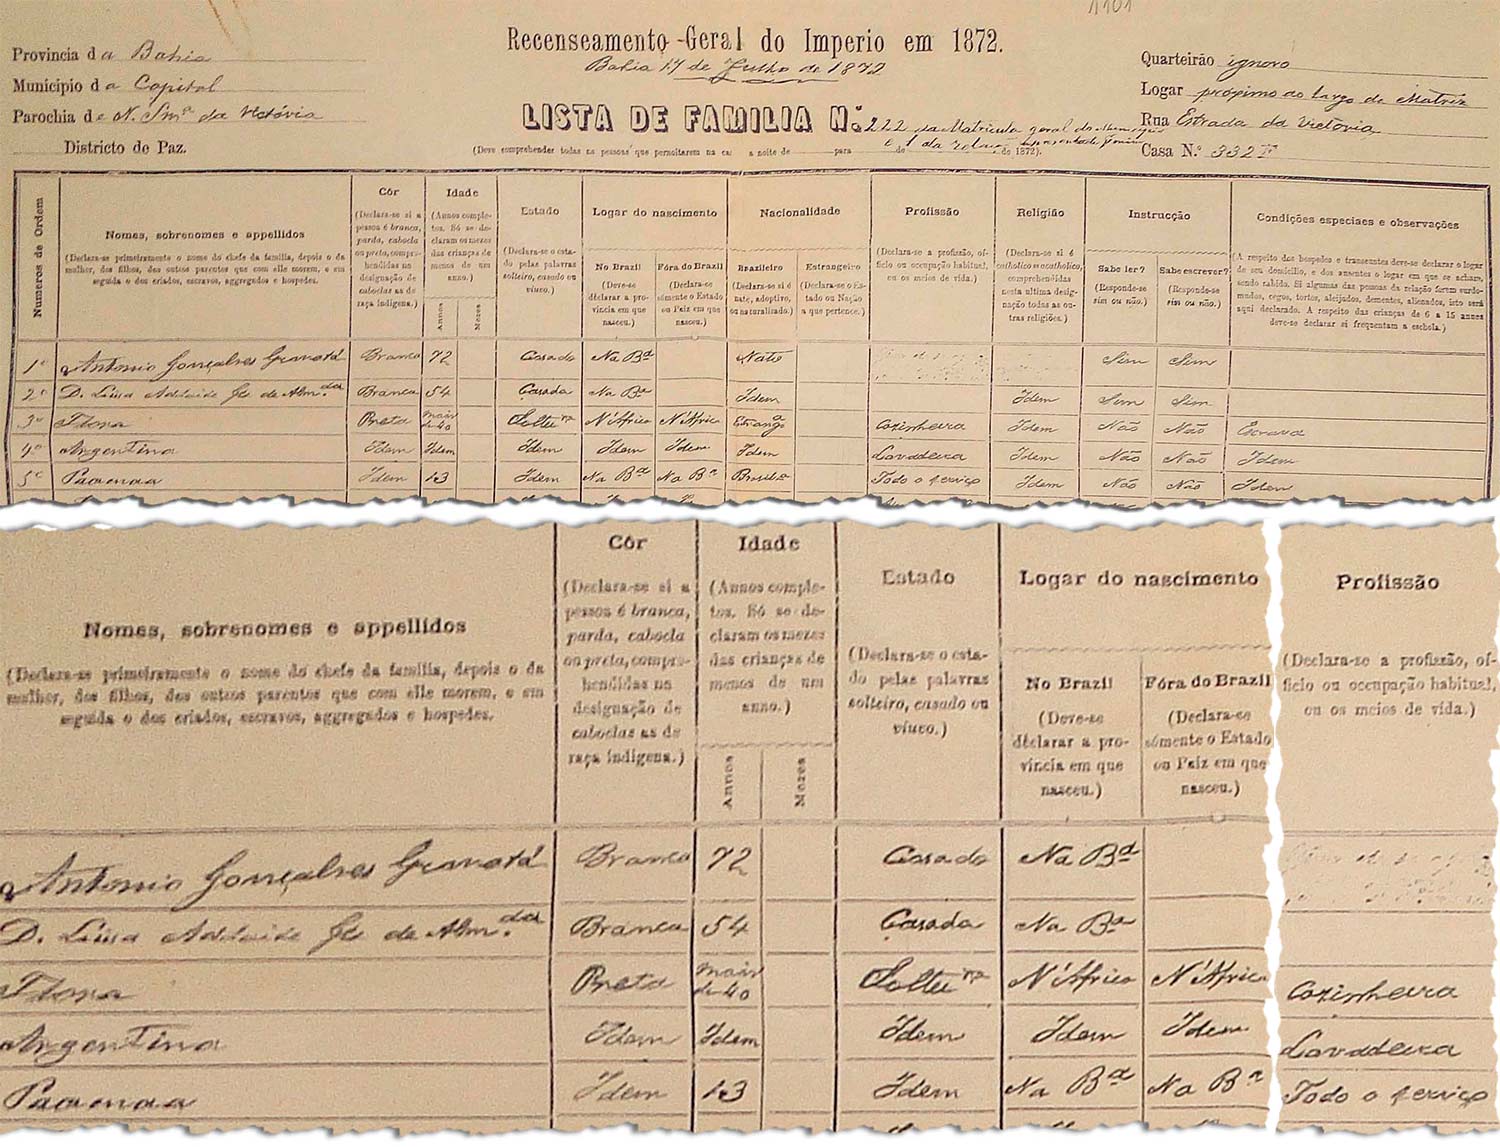 1101
Provincia da Bahia
Recenseamento Geral do Imperio em 1872.
Quarteirão ignoro
Bahia 17 de Julho de 1872
Municipio da Capital
Logar proximo ao largo da Matriz
Parochia de N. Snrª da Victória
LISTA DE FAMILIA N.º 222 da Matricula geral do Municipio
Rua Estrada da Victoria
Districto de Paz.
(Deve comprehender todas as pessoas que pernoitarem na casa a noite de para de de 1872).
e 1 da relação
Casa N.º 332 F
Numeros de Ordem
Nomes, sobrenomes e appellidos
(Declara-se primeiramente o nome do chefe da familia, depois o da
mulher, dos filhos, dos outros parentes que com elle morem, e em
seguida o dos criados, escravos, aggregados e hospedes.
Côr
(Declara-se si a
pessos é branca,
parda, cabocla
ou preta, compre-
hendidas na
designação de
caboclas as de
raça indigena.)
Idade
(Annos comple-
tos. Só se de-
claram os mezes
das crianças de
menos de um
anno.)
Annos
Mezes
Estado
(Declara-se o esta-
do pelas palavras
solteiro, casado ou
viuvo.)
Logar do nascimento
No Brazil
(Deve-se
déclarar a pro-
vincia em que
nasceu.)
Fóra do Brazil
(Declara-se
sómente o Estado
ou Paiz em que
nasceu.)
Nacionalidade
Brazileiro
(Declara-se si é
nato, adoptivo,
ou naturalizado.)
Estrangeiro
(Declara-se o Es-
tado ou Nação
a que pertence.)
Profissão
(Declara-se a profissão, of-
ficio ou occupação habitual,
ou os meios de vida.)
Religião
(Declara-se si é
catholico ou acatholico,
comprehendidas
nesta ultima desig-
nação todas as ou-
tras religiões.)
Instrucção
Sabe ler?
(Responde-se
sim ou não.)
Sabe escrever?
(Responde-se
sim ou não.)
Condições especiaes e observações
(A respeito dos hospedes e transeuntes deve-se declarar o logar
de seu domicilio, e dos ausentes o logar em que se acham,
sendo sabido. Si algumas das pessoas da relação forem surdo-
mudos, cegos, tortos, aleijados, dementes, alienados, isto será
aqui declarado. A respeito das crianças de 6 a 15 annos
deve-se declarar si frequentam a eschola.)
1º Antonio Gonçalves Gravatá Branca 72 Casado Na Bª Nato Sim Sim
2º D. Luisa Adelaide Gz de Alm.da Branca 54 Casada Na Bª Idem Idem Sim Sim
3º Flora Preta mais de 40 Solteira N'Africa N'Africa Estrangª Cozinheira Idem Não Não Escrava
4º Argentina Idem Idem Idem Idem Idem Idem Lavadeira Idem Não Não Idem
5º Idem 13 Idem Na Bª Na Bª Brasilª Todo o serviço Idem Não Não Idem
Nomes, sobrenomes e appellidos
(Declara-se primeiramente o nome do chefe da familia, depois o da
mulher, dos filhos, dos outros parentes que com elle morem, e em
seguida o dos criados, escravos, aggregados e hospedes.
Côr
(Declara-se si a
pessos é branca,
parda, cabocla
ou preta, compre-
hendidas na
designação de
caboclas as de
raça indigena.)
Idade
(Annos comple-
tos. Só se de-
claram os mezes
das crianças de
menos de um
anno.)
Annos
Mezes
Estado
(Declara-se o esta-
do pelas palavras
solteiro, casado ou
viuvo.)
Logar do nascimento
No Brazil
(Deve-se
déclarar a pro-
vincia em que
nasceu.)
Fóra do Brazil
(Declara-se
sómente o Estado
ou Paiz em que
nasceu.)
Profissão
(Declara-se a profissão, of-
ficio ou occupação habitual,
ou os meios de vida.)
Antonio Gonçalves Gravatá Branca 72 Casado Na Bª
D. Luisa Adelaide Gz de Alm.da Branca 54 Casada Na Bª
Flora Preta mais de 40 Solteira N'Africa N'Africa Cozinheira
Argentina Idem Idem Idem Idem Idem Lavadeira
Idem 13 Idem Na Bª Na Bª Todo o serviço